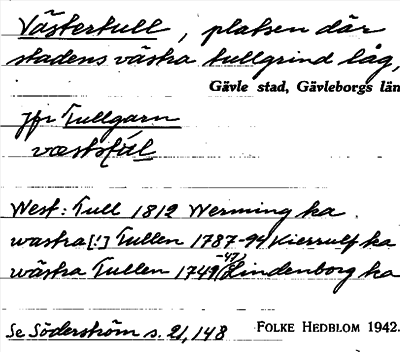 Västertull, platsen där
stadens västra tullgrind låg,
Gävle stad, Gävleborgs län
Jfr Tullgarn
West: Tull 1812 Werming ka
wastra [!] Tullen 1787-94 Kierrulf ka
wästra Tullen 1742 Lindenborg ka
Se Söderström s. 21, 148
FOLKE HEDBLOM 1942.